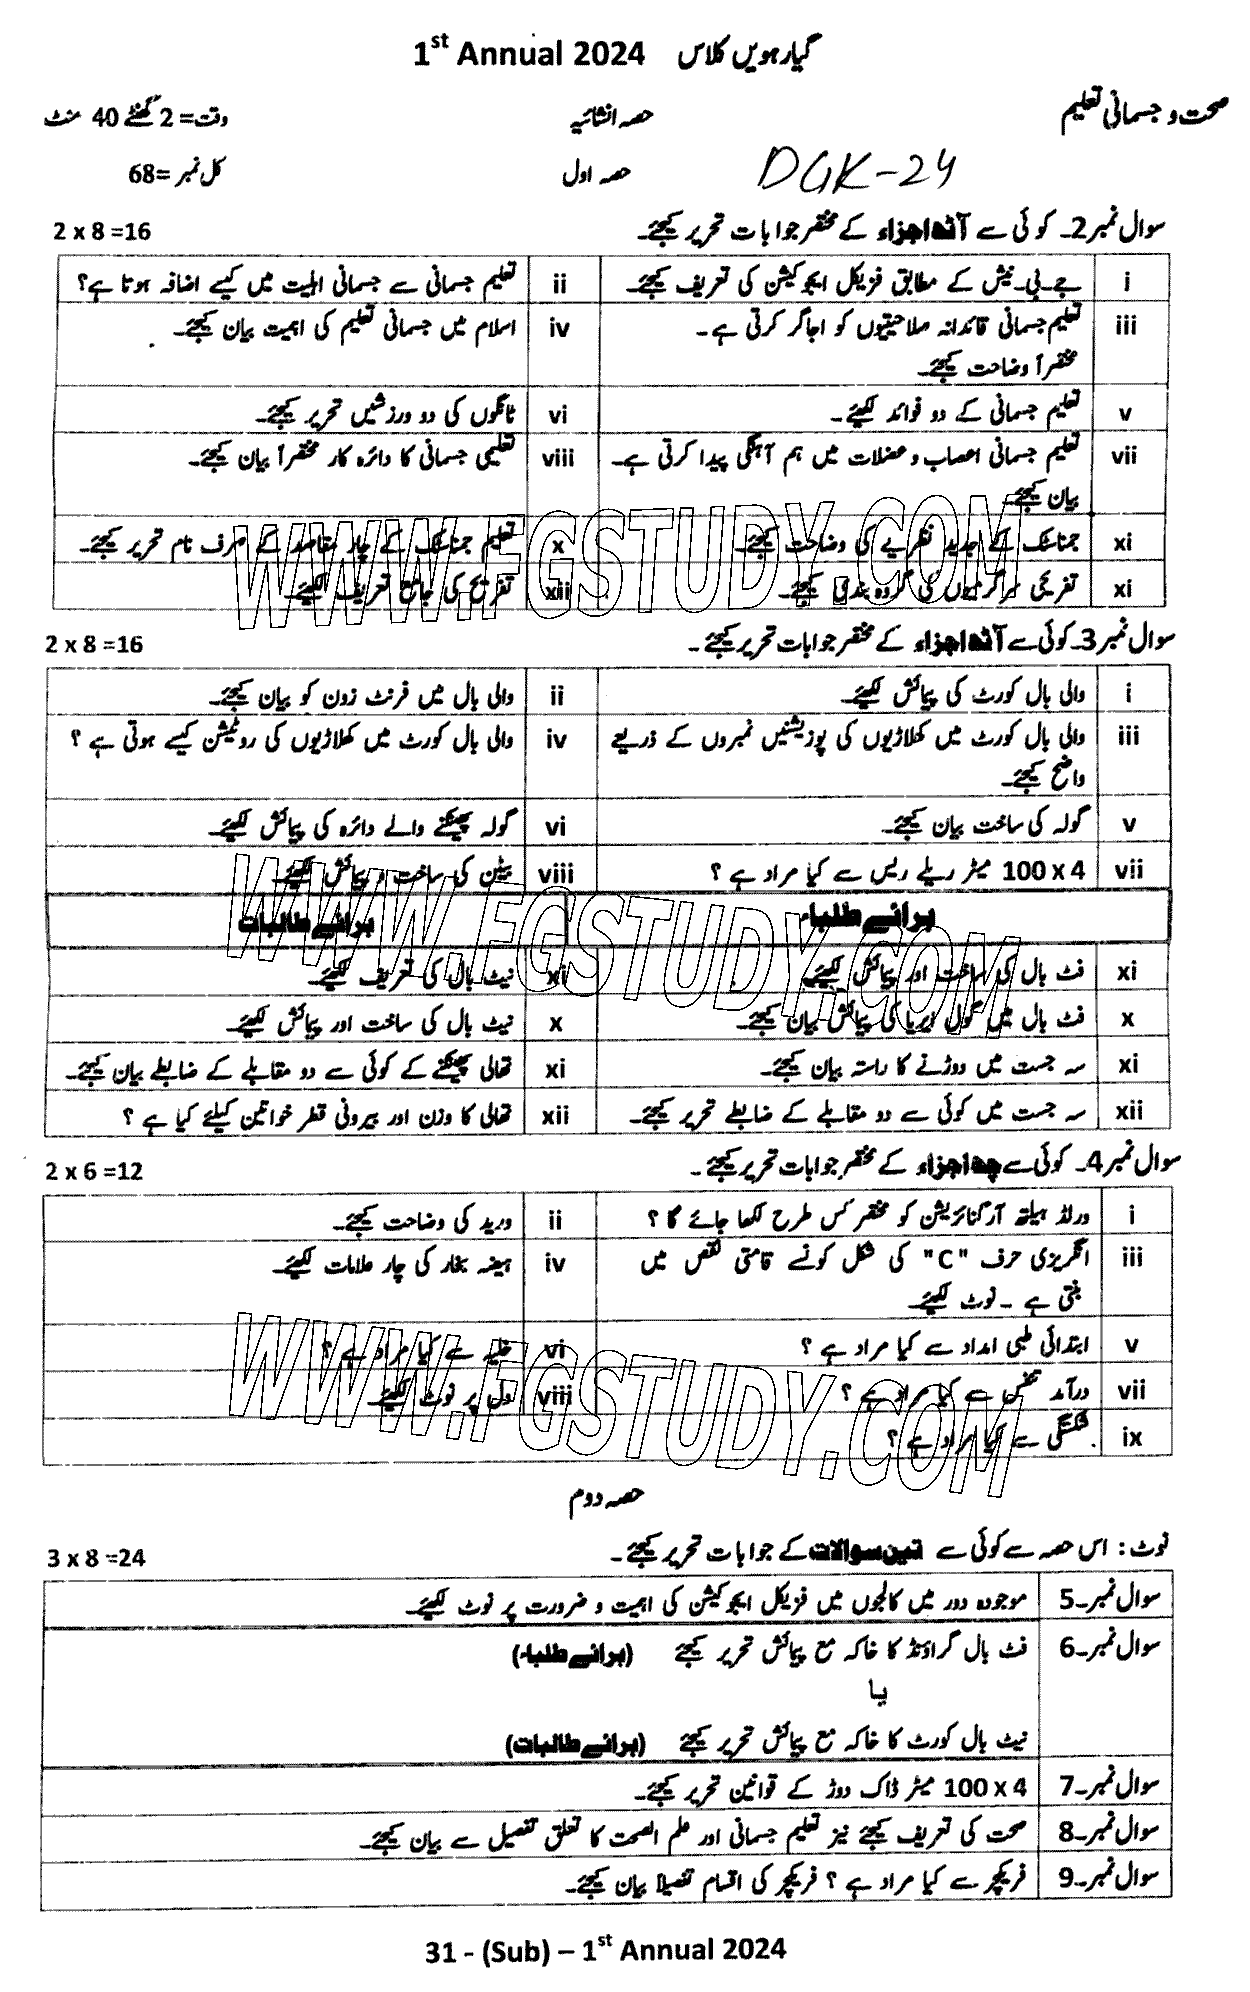 1st Annual 2024 گیارہویں کلاس
صحت و جسمانی تعلیم حصہ انشائیہ وقت= 2 گھنٹے 40 منٹ
DGK-24 حصہ اول کل نمبر =68
سوال نمبر 2۔ کوئی سے آٹھ اجزاء کے مختصر جوابات تحریر کیجئے۔ 2 x 8 =16
i جے۔بی۔نیش کے مطابق فزیکل ایجوکیشن کی تعریف کیجئے۔ ii تعلیم جسمانی سے جسمانی اہلیت میں کیسے اضافہ ہوتا ہے؟
iii تعلیم جسمانی قائدانہ صلاحیتوں کو اجاگر کرتی ہے۔ iv اسلام میں جسمانی تعلیم کی اہمیت بیان کیجئے۔
مختصراً وضاحت کیجئے۔
v تعلیم جسمانی کے دو فوائد لکھیئے۔ vi ٹانگوں کی دو ورزشیں تحریر کیجئے۔
vii تعلیم جسمانی اعصاب و عضلات میں ہم آہنگی پیدا کرتی ہے۔ viii تعلیمی جسمانی کا دائرہ کار مختصراً بیان کیجئے۔
بیان کیجئے۔
xi جمناسٹک کے جدید نظریے کی وضاحت کیجئے۔ x تعلیم جمناسٹک کے چار مقاصد کے صرف نام تحریر کیجئے۔
xi تفریحی سرگرمیوں کی گروہ بندی کیجئے۔ xii تفریح کی جامع تعریف لکھیئے۔
WWW.FGSTUDY.COM
سوال نمبر 3۔ کوئی سے آٹھ اجزاء کے مختصر جوابات تحریر کیجئے۔ 2 x 8 =16
i والی بال کورٹ کی پیمائش لکھیئے۔ ii والی بال میں فرنٹ زون کو بیان کیجئے۔
iii والی بال کورٹ میں کھلاڑیوں کی پوزیشنیں نمبروں کے ذریعے iv والی بال کورٹ میں کھلاڑیوں کی روٹیشن کیسے ہوتی ہے ؟
واضح کیجئے۔
v گولہ کی ساخت بیان کیجئے۔ vi گولہ پھینکنے والے دائرہ کی پیمائش لکھیئے۔
vii 100 x 4 میٹر ریلے ریس سے کیا مراد ہے ؟ viii بیٹن کی ساخت و پیمائش لکھیئے۔
برائے طلباء برائے طالبات
xi فٹ بال کی ساخت اور پیمائش لکھیئے۔ xi نیٹ بال کی تعریف لکھیئے۔
x فٹ بال میں گول ایریا کی پیمائش بیان کیجئے۔ x نیٹ بال کی ساخت اور پیمائش لکھیئے۔
xi سہ جست میں دوڑنے کا راستہ بیان کیجئے۔ xi تھالی پھینکنے کے کوئی سے دو مقابلے کے ضابطے بیان کیجئے۔
xii سہ جست میں کوئی سے دو مقابلے کے ضابطے تحریر کیجئے۔ xii تھالی کا وزن اور بیرونی قطر خواتین کیلئے کیا ہے ؟
WWW.FGSTUDY.COM
سوال نمبر 4۔ کوئی سے چھ اجزاء کے مختصر جوابات تحریر کیجئے۔ 2 x 6 =12
i ورلڈ ہیلتھ آرگنائزیشن کو مختصر کس طرح لکھا جائے گا ؟ ii ورید کی وضاحت کیجئے۔
iii انگریزی حرف "C" کی شکل کونسے قامتی نقص میں iv ہیضہ بخار کی چار علامات لکھیئے۔
بنتی ہے ۔ نوٹ لکھیئے۔
v ابتدائی طبی امداد سے کیا مراد ہے ؟ vi خلیے سے کیا مراد ہے ؟
vii درآمد تنفس سے کیا مراد ہے ؟ viii دل پر نوٹ لکھیئے۔
ix شکستگی سے کیا مراد ہے ؟
WWW.FGSTUDY.COM
حصہ دوم
نوٹ : اس حصہ سے کوئی سے تین سوالات کے جوابات تحریر کیجئے۔ 3 x 8 =24
سوال نمبر۔5 موجودہ دور میں کالجوں میں فزیکل ایجوکیشن کی اہمیت و ضرورت پر نوٹ لکھیئے۔
سوال نمبر۔6 فٹ بال گراؤنڈ کا خاکہ مع پیمائش تحریر کیجئے (برائے طلباء)
یا
نیٹ بال کورٹ کا خاکہ مع پیمائش تحریر کیجئے (برائے طالبات)
سوال نمبر۔7 100 x 4 میٹر ڈاک دوڑ کے قوانین تحریر کیجئے۔
سوال نمبر۔8 صحت کی تعریف کیجئے نیز تعلیم جسمانی اور علم الصحت کا تعلق تفصیل سے بیان کیجئے۔
سوال نمبر۔9 فریکچر سے کیا مراد ہے ؟ فریکچر کی اقسام تفصیلاً بیان کیجئے۔
31 - (Sub) – 1st Annual 2024